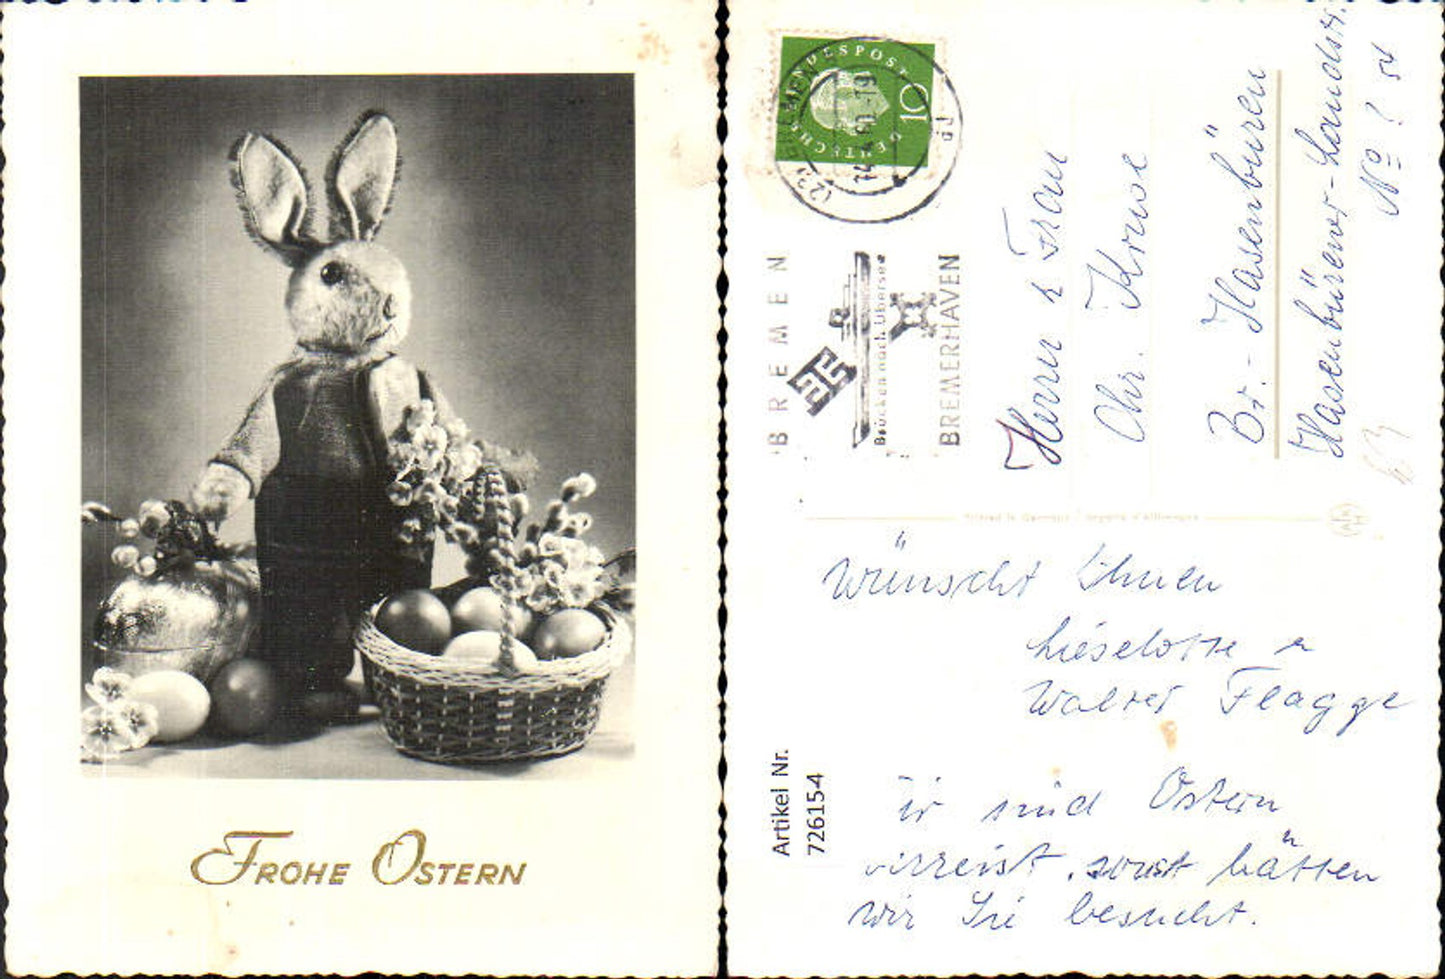 FROHE OSTERN
DEUTSCHE BUNDESPOST
10
(23)
BREMEN
Brücken nach Übersee
BREMERHAVEN
Herrn & Frau
Chr. Kruse
Br.-Hasenbüren
Hasenbürener-Landstr.
No ? 54
Wünscht Ihnen
Lieselotte u
Walter Flagge
Wir sind Ostern
verreist, sonst hätten
wir Sie besucht.
Artikel Nr.
726154